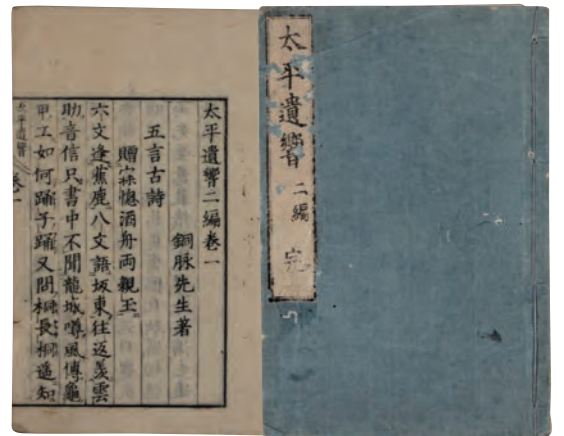 太平遺響 二編 完
太平遺響二編卷一
銅脉先生著
五言古詩
贈寐惚酒舟両親王
六文逢蕉鹿八文語坂東往返羨雲
助音信只書中不聞龍城噂風傳龜
甲工如何踊子踊又問桐長桐遙知
太平遺響 卷一